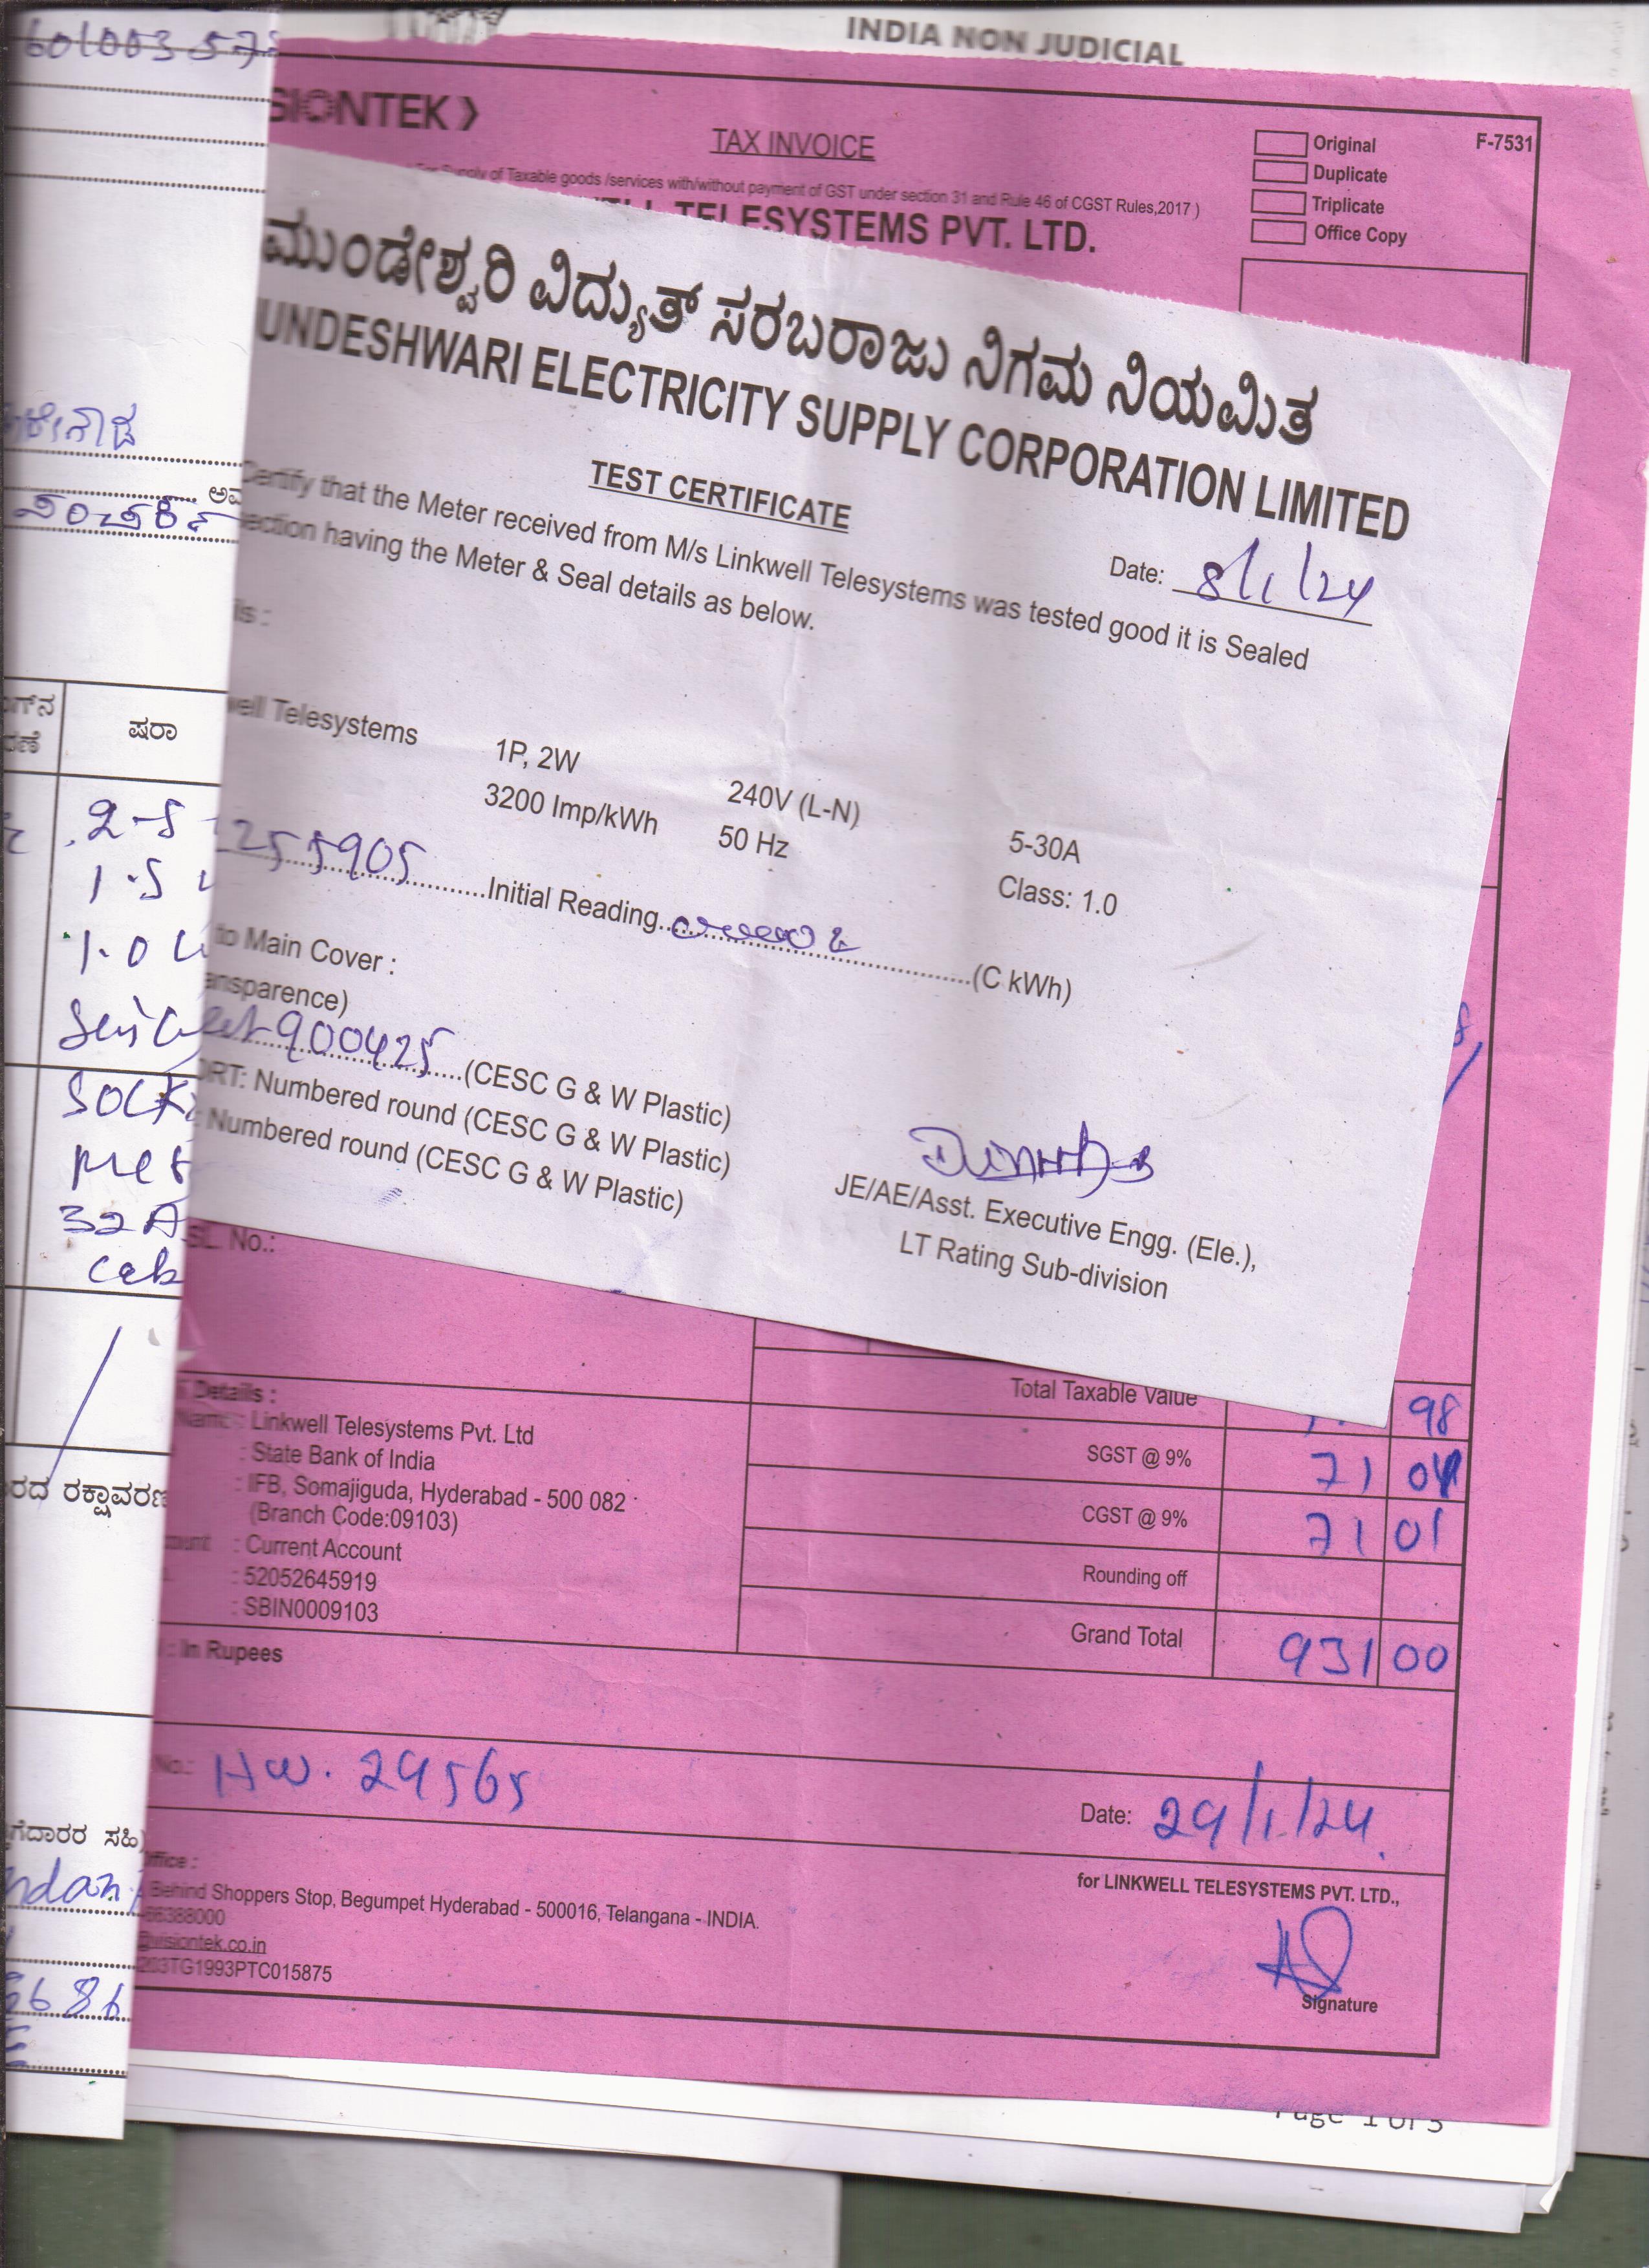 INDIA NON JUDICIAL
SIONTEK
TAX INVOICE
Original
Duplicate
Triplicate
Office Copy
F-7531
Supply of Taxable goods /services with/without payment of GST under section 31 and Rule 46 of CGST Rules,2017 )
TELESYSTEMS PVT. LTD.
ಮುಂಡೇಶ್ವರಿ ವಿದ್ಯುತ್ ಸರಬರಾಜು ನಿಗಮ ನಿಯಮಿತ
UNDESHWARI ELECTRICITY SUPPLY CORPORATION LIMITED
TEST CERTIFICATE
Date: 8/1/24
Certify that the Meter received from M/s Linkwell Telesystems was tested good it is Sealed
ection having the Meter & Seal details as below.
ls :
well Telesystems
1P, 2W
240V (L-N)
5-30A
3200 Imp/kWh
50 Hz
Class: 1.0
255905 Initial Reading (C kWh)
to Main Cover :
ansparence)
900425 (CESC G & W Plastic)
ORT: Numbered round (CESC G & W Plastic)
Numbered round (CESC G & W Plastic)
JE/AE/Asst. Executive Engg. (Ele.),
LT Rating Sub-division
SL. No.:
Total Taxable Value 98
Details :
Name : Linkwell Telesystems Pvt. Ltd
: State Bank of India
: IFB, Somajiguda, Hyderabad - 500 082
(Branch Code:09103)
ount : Current Account
: 52052645919
: SBIN0009103
SGST @ 9% 71 01
CGST @ 9% 71 01
Rounding off
Grand Total 931 00
: In Rupees
No.: HW. 29565
Date: 29/1/24
ffice :
Behind Shoppers Stop, Begumpet Hyderabad - 500016, Telangana - INDIA.
66388000
@visiontek.co.in
203TG1993PTC015875
for LINKWELL TELESYSTEMS PVT. LTD.,
Signature
Page 1 of 3
ಷರಾ
1.5
1.0
SOCK
met
32A
cab
ರದ ರಕ್ಷಾವರಣ
ಗೆದಾರರ ಸಹಿ)
ndan